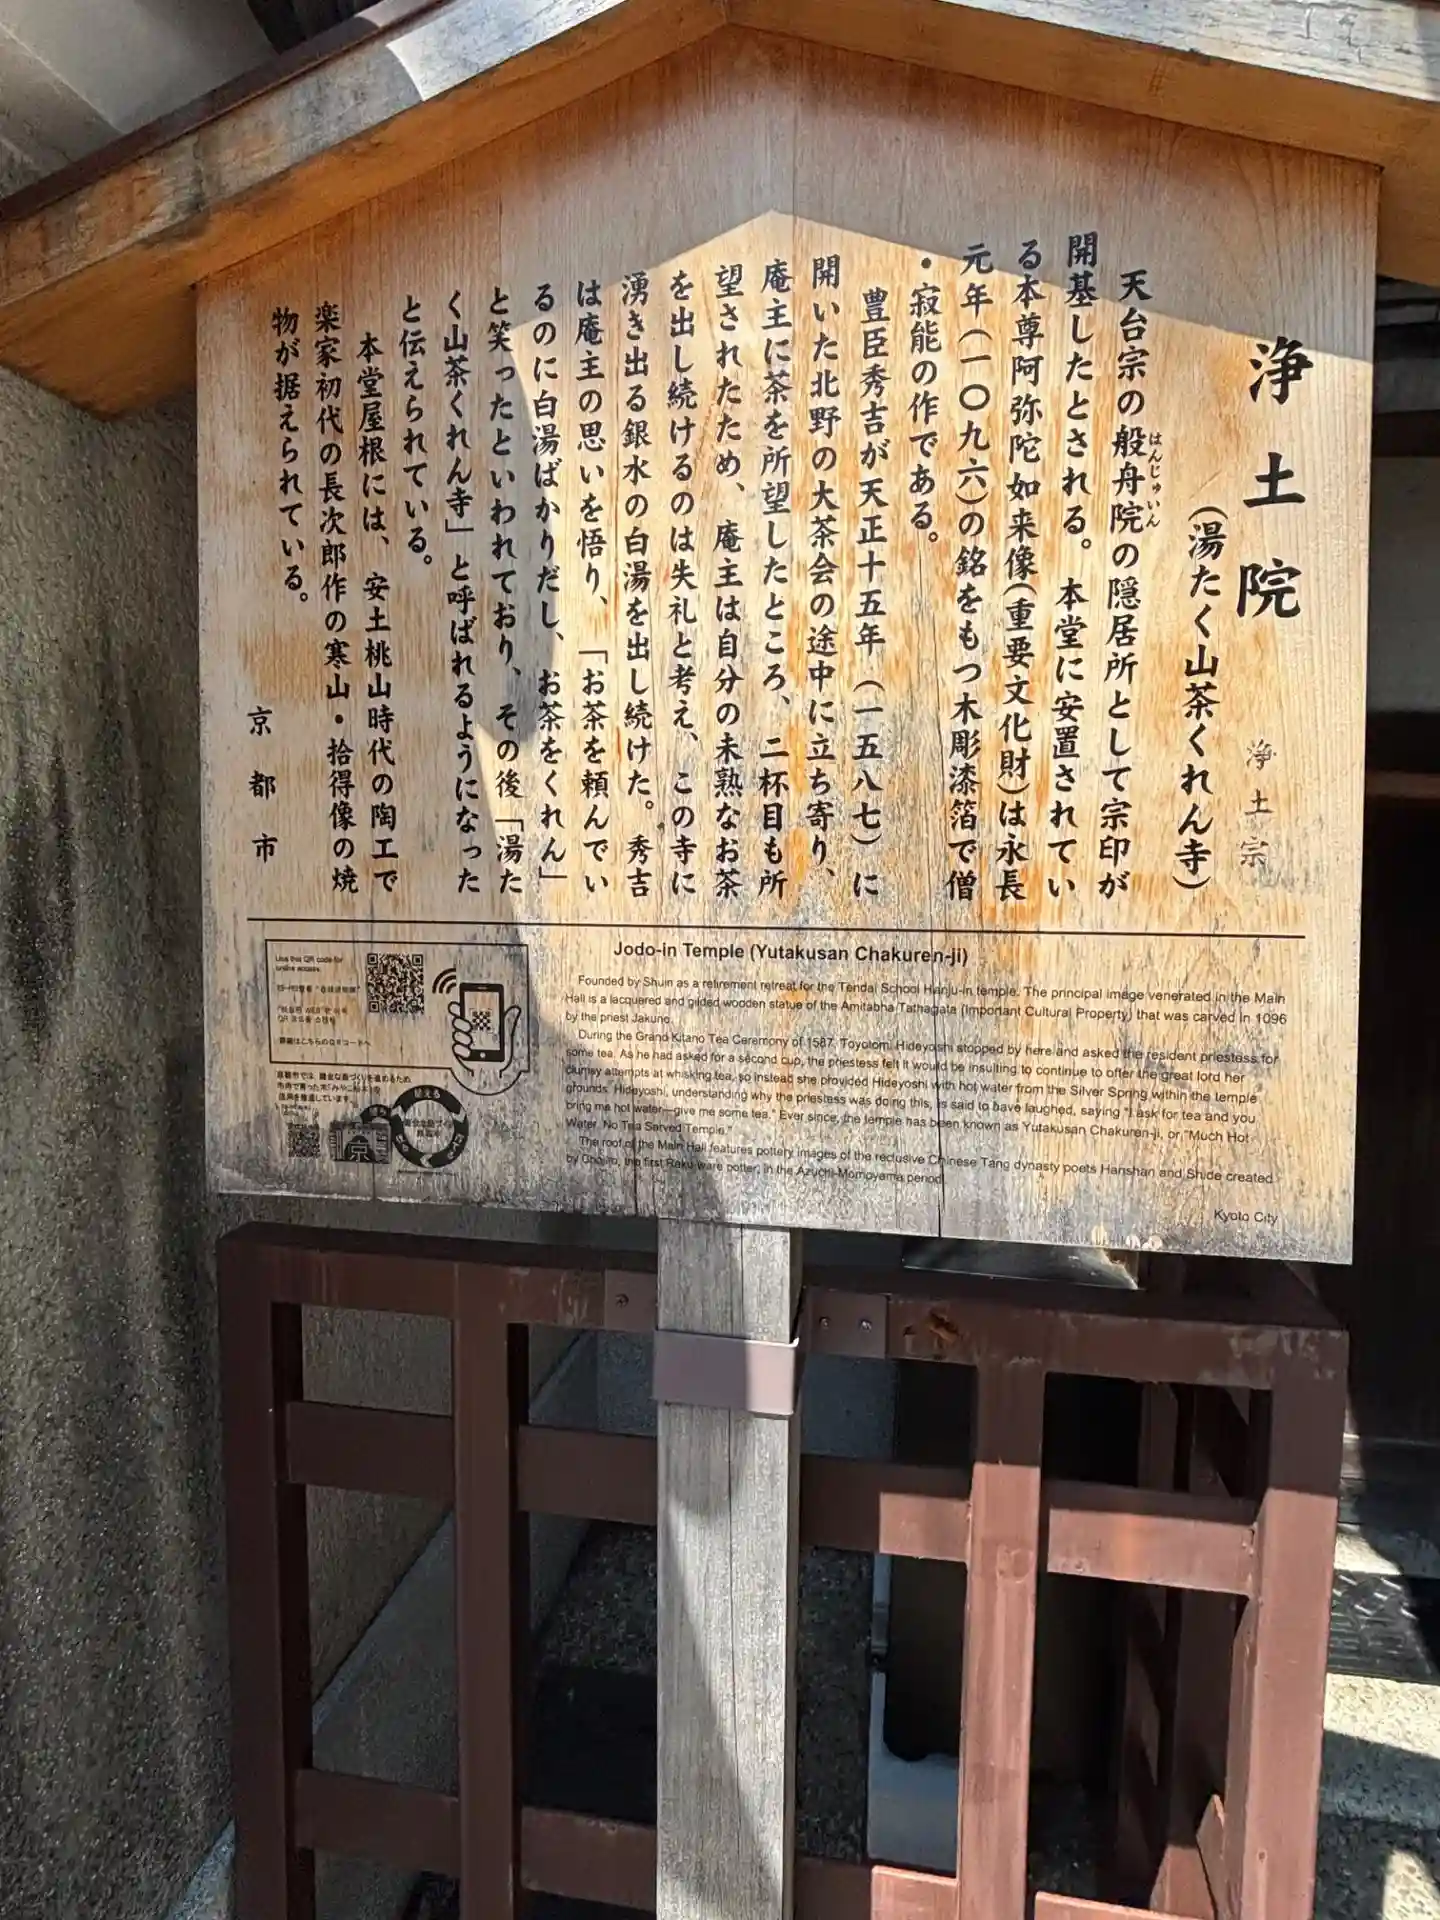 浄土院
浄土宗
(湯たく山茶くれん寺)
天台宗の般舟院の隠居所として宗印が
はんじゅいん
開基したとされる。本堂に安置されてい
る本尊阿弥陀如来像(重要文化財)は永長
元年(一〇九六)の銘をもつ木彫漆箔で僧
・寂能の作である。
豊臣秀吉が天正十五年(一五八七)に
開いた北野の大茶会の途中に立ち寄り、
庵主に茶を所望したところ、二杯目も所
望されたため、庵主は自分の未熟なお茶
を出し続けるのは失礼と考え、この寺に
湧き出る銀水の白湯を出し続けた。秀吉
は庵主の思いを悟り、「お茶を頼んでい
るのに白湯ばかりだし、お茶をくれん」
と笑ったといわれており、その後「湯た
く山茶くれん寺」と呼ばれるようになった
と伝えられている。
本堂屋根には、安土桃山時代の陶工で
楽家初代の長次郎作の寒山・拾得像の焼
物が据えられている。
京都市
Jodo-in Temple (Yutakusan Chakuren-ji)
Founded by Shuin as a retirement retreat for the Tendai School Hanju-in temple. The principal image venerated in the Main
Hall is a lacquered and gilded wooden statue of the Amitabha Tathagata (Important Cultural Property) that was carved in 1096
by the priest Jakuno.
During the Grand Kitano Tea Ceremony of 1587, Toyotomi Hideyoshi stopped by here and asked the resident priestess for
some tea. As he had asked for a second cup, the priestess felt it would be insulting to continue to offer the great lord her
clumsy attempts at whisking tea, so instead she provided Hideyoshi with hot water from the Silver Spring within the temple
grounds. Hideyoshi, understanding why the priestess was doing this, is said to have laughed, saying "I ask for tea and you
bring me hot water—give me some tea." Ever since, the temple has been known as Yutakusan Chakuren-ji, or "Much Hot
Water, No Tea Served Temple."
The roof of the Main Hall features pottery images of the reclusive Chinese Tang dynasty poets Hanshan and Shide created
by Chojiro, the first Raku ware potter, in the Azuchi-Momoyama period.
Kyoto City
Use this QR code for
online access.
詳細はこちらのQRコードへ
京都市では、健全な森づくりを進めるため
市内で育った木「みやこ杣木」の
活用を推進しています。
植える
京